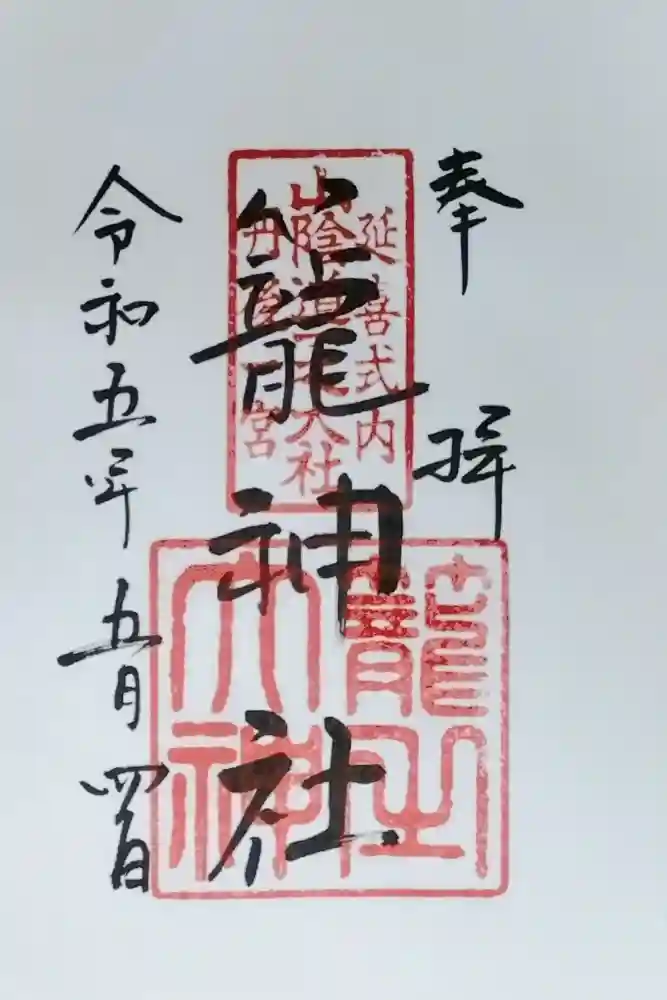 奉拝
延喜式内
山陰道一之大社
丹後一宮
籠神社
籠之大神
令和五年五月四日